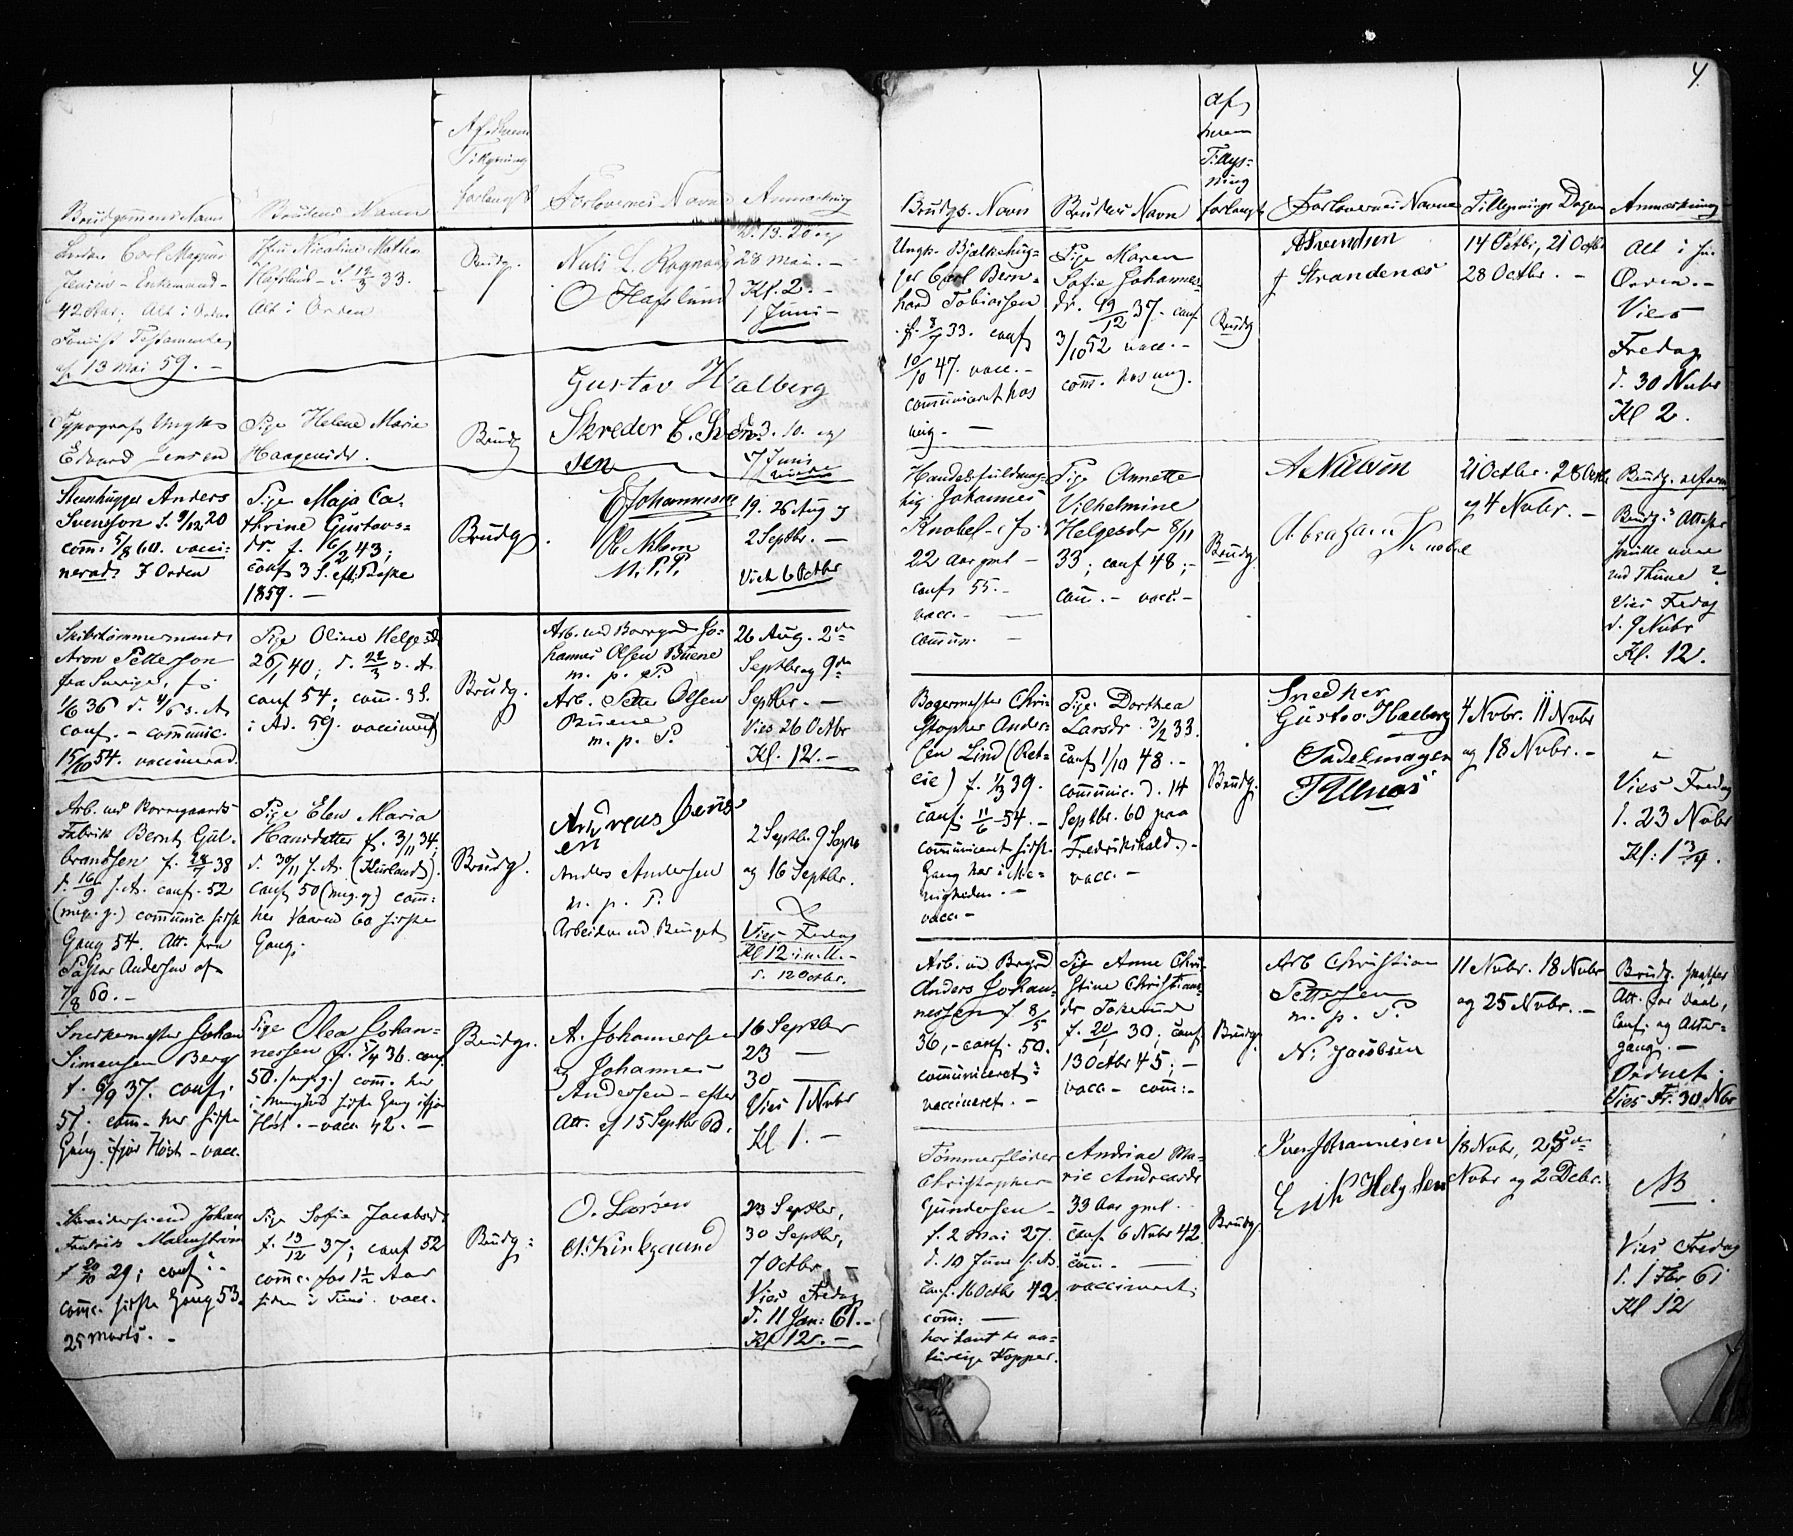 Brudgommens Navn
Brudens Navn
Af hvem
Tillysning
forlangt
Forlovernes Navne
Anmærkning
Carl Magnus
Jensen - Enkemand -
42 Aar; Alt i Orden
13 Mai 59. -
Nicoline Mathea
Haflund - f. 12/3 33.
Alt i Orden
Brudg.
Niels L.
O Haflund
13. 20 og
28 Mai. -
Kl. 2. -
1 Juni -
Typograf Ungk.
Edvard Jensen
Pige Helene Marie
Haagensdr.
Brudg
Gustav Halberg
Skreder C.
sen
3. 10. og
17 Juni
Steenhugger Anders
Svensson f. 9/12 20
com: 5/8 60. vacci-
nerad: I Orden
Pige Maja Ca-
thrine Gustavs-
dr. f. 16/2 43;
conf 3 S. eft: Paaske
1859. -
Brudg.
E Johannesen
M. P. P.
19. 26 Aug og
2 Septbr. -
Viet 6 Octbr
Skibstømmermand
Aron Petterson
fra Sverige, f.
1/6 36 d. 4/6 s. A.
conf. - communic.
15/10 54. vaccinerad.
Pige Oline Helgesd.
26/1 40; d. 22/3 s. A.
conf 54; com. 3 S.
i Ad. 59. vaccineret
Brudg.
Arb. ved Borregaard Jo-
hannes Olsen Buene
m. p. P.
Arb. Petter Olsen
Buene
m. p. P.
26 Aug. 2den
Septbr og 9de
Septbr. -
Vies 26 Octbr
Kl. 12. -
Arb. ved Borregaards
Fabrik Bernt Gul-
brandsen f. 28/7 38
d. 16/9 s. A. conf. 52
(mig. g.) communic. første
Gang 54. Att. fra
Pastor Andersen af
7/8 60. -
Pige Elen Maria
Hansdatter f. 3/11 34;
d. 30/11 s. A. (Kurland).
conf 50 (mig. g.) com:
her Vaaren 60 første
Gang.
Brudg.
Andreas Jens-
en
Anders Andersen
m. p. P.
2 Septbr. 9 Septbr
og 16 Septbr.
Vies Fredag
Kl 12 i. m. U. -
d. 12 Octbr.
Snedkermester Johan
Simensen Berg
f. 6/9 37. conf.
51. com. her første
Gang ifjor Høst - vacc.
Pige Olea Johan-
nessen f. 5/4 36. conf
50. (mig. g.) com. her
i Menighed første Gang ifjor
Høst. - vacc. 42. -
Brudg.
A. Johannersen
og Johannes
Andersen - efter
Att. af 15 Septbr 60.
16 Septbr
23 -
30 -
Vies 1 Nvbr
Kl 1. -
Skreddersvend Johan
Fredrik Malmstrøm
f 20/10 29; conf: -
com. første Gang 53.
25 Marts. -
Pige Sofie Jacobsdr
f. 13/12 37; conf 52
com. for 1 1/2 Aar
siden i Tune. vacc.
Brudg:
O. Larsen
A. Kirkgaund
23 Septbr,
30 Septbr,
7 Octbr. -
Vies Fredag
d. 11 Jan: 61. -
Kl 12. -
4.
Brudgs. Navn
Brudens Navn
af
hvem
Tillys-
ning
forlangt
Forlovernes Navne
Tillysnings Dagen
Anmærkning
Ungk. Bjælkehug-
ger Carl Bern-
hard Tobiasen
f. 8/7 33. conf
10/10 47. vacc. -
communiceret hos
mig. -
Pige Maren
Sofie Johannes-
dr. 19/12 37. conf
3/10 52 vacc. -
com. hos mig.
Brudg
A Svendsen
f Strandenæs
14 Octbr, 21 Octbr
28 Octbr. -
Alt i sin
Orden. -
Vies
Fredag
d. 30 Nvbr
Kl 2.
Handelsfuldmæg-
tig Johannes
Knobel - f.
22 Aar gml -
conf 55. -
vacc. -
commun. -
Pige Annette
Vilhelmine
Helgesdr 8/11
33; conf 48; -
com. - vacc. -
Brudg.
A Nielsen
Abraham Knobel
21 Octbr. 28 Octbr
og 4 Nvbr. -
Brudg. reform
Brudgs Attester
skulle være
ved Thune?
Vies Fredag
d. 9 Nvbr
Kl. 12.
Bagermester Chri-
stopher Ander-
sen Lind (Ret-
sie) f. 1/3 39.
conf. 11/6 54. -
communiceret første
Gang her i Me-
nigheden. -
vacc. -
Pige Dorthea
Larsdr. 3/2 33.
conf 1/10 48. -
communic. d. 14
Septbr. 60 paa
Fredrikshald. -
vacc. -
Brudg.
Snedker
Gustav Halberg
Sadelmager
4 Nvbr. 11 Nvbr
og 18 Nvbr. -
Vies Fredag
d. 23 Nvbr
Kl: 1 3/4.
Arb. ved Brgrd
Anders Johan-
nessen f 8/5
36, - conf. 50.
communiceret:
vaccineret. -
Pige Anne Chri-
stine Christians-
dr Tokerud
f. 20/1 30; conf
13 Octbr 45; -
vacc - com: -
Brudg.
Arb Christian
Pettersen
m. p. P.
N. Jacobsen
11 Nvbr. 18 Nvbr
og 25 Nvbr. -
Brudg. skaffer
Att. for Daab,
Conf. og Alter-
gang. -
Ordnet.
Vies Fr. 30 Nvbr
Tømmerfløder
Christopher
Gundersen -
f. 2 Mai 27.
d. 10 Juni s. A.
conf. 16 Octbr 42.
com: -
har havt de na-
turlige Kopper.
Andrine Ma-
rie Andreasdr
33 Aar gml.
conf. 6 Nvbr 42
com. -
vaccineret.
Brudg.
Iver Johannesen
Erik Helgesen
18 Nvbr, 25de
Nvbr og 2 Decbr.
NB.
Vies Fredag
d. 1 Fbr 61
Kl 12